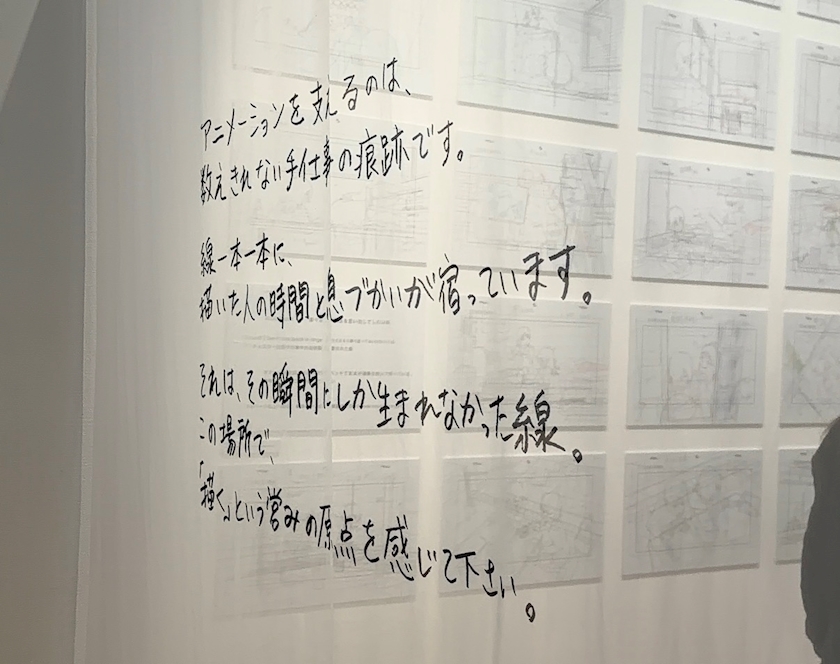 アニメーションを支えるのは、
数えきれない手仕事の痕跡です。
線一本一本に、
描いた人の時間と息づかいが宿っています。
それは、その瞬間にしか生まれなかった線。
この場所で、
「描く」という営みの原点を感じて下さい。